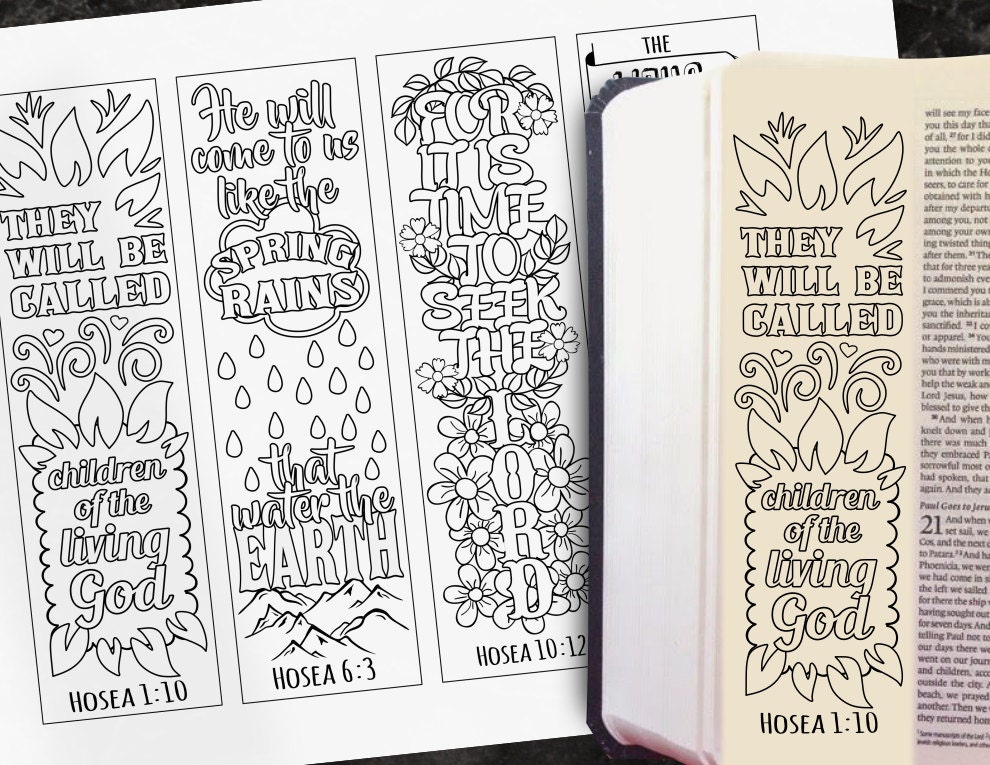 THEY
WILL BE
CALLED
children
of the
living
God
HOSEA 1:10
He will
come to us
like the
SPRING
RAINS
that
water the
EARTH
HOSEA 6:3
FOR
IT IS
TIME
TO
SEEK
THE
LORD
HOSEA 10:12
THE
THEY
WILL BE
CALLED
children
of the
living
God
HOSEA 1:10
will see my face
you this day tha
of all, 27 for I did
you the whole c
attention to you
in which the Ho
seers, to care for
obtained with h
after my depart
among you, not
among your own
ing twisted thing
after them. 31 The
that for three yea
to admonish eve
I commend you t
grace, which is ab
you the inheritan
sanctified. 33 I co
or apparel. 34 You
hands ministered
who were with m
you that by work
help the weak and
Lord Jesus, how
blessed to give th
36 And when h
knelt down and
there was much
they embraced Pa
sorrowful most o
had spoken, that
again. And they a
Paul Goes to Jeru
21 And when
set sail, we
Cos, and the next d
to Patara. 2 And ha
Phoenicia, we wen
we had come in si
the left we sailed
for there the ship w
having sought out
for seven days. And
telling Paul not to
our days there we
went on our journ
and children, acco
outside the city. A
beach, we prayed
another. Then we
they returned hom